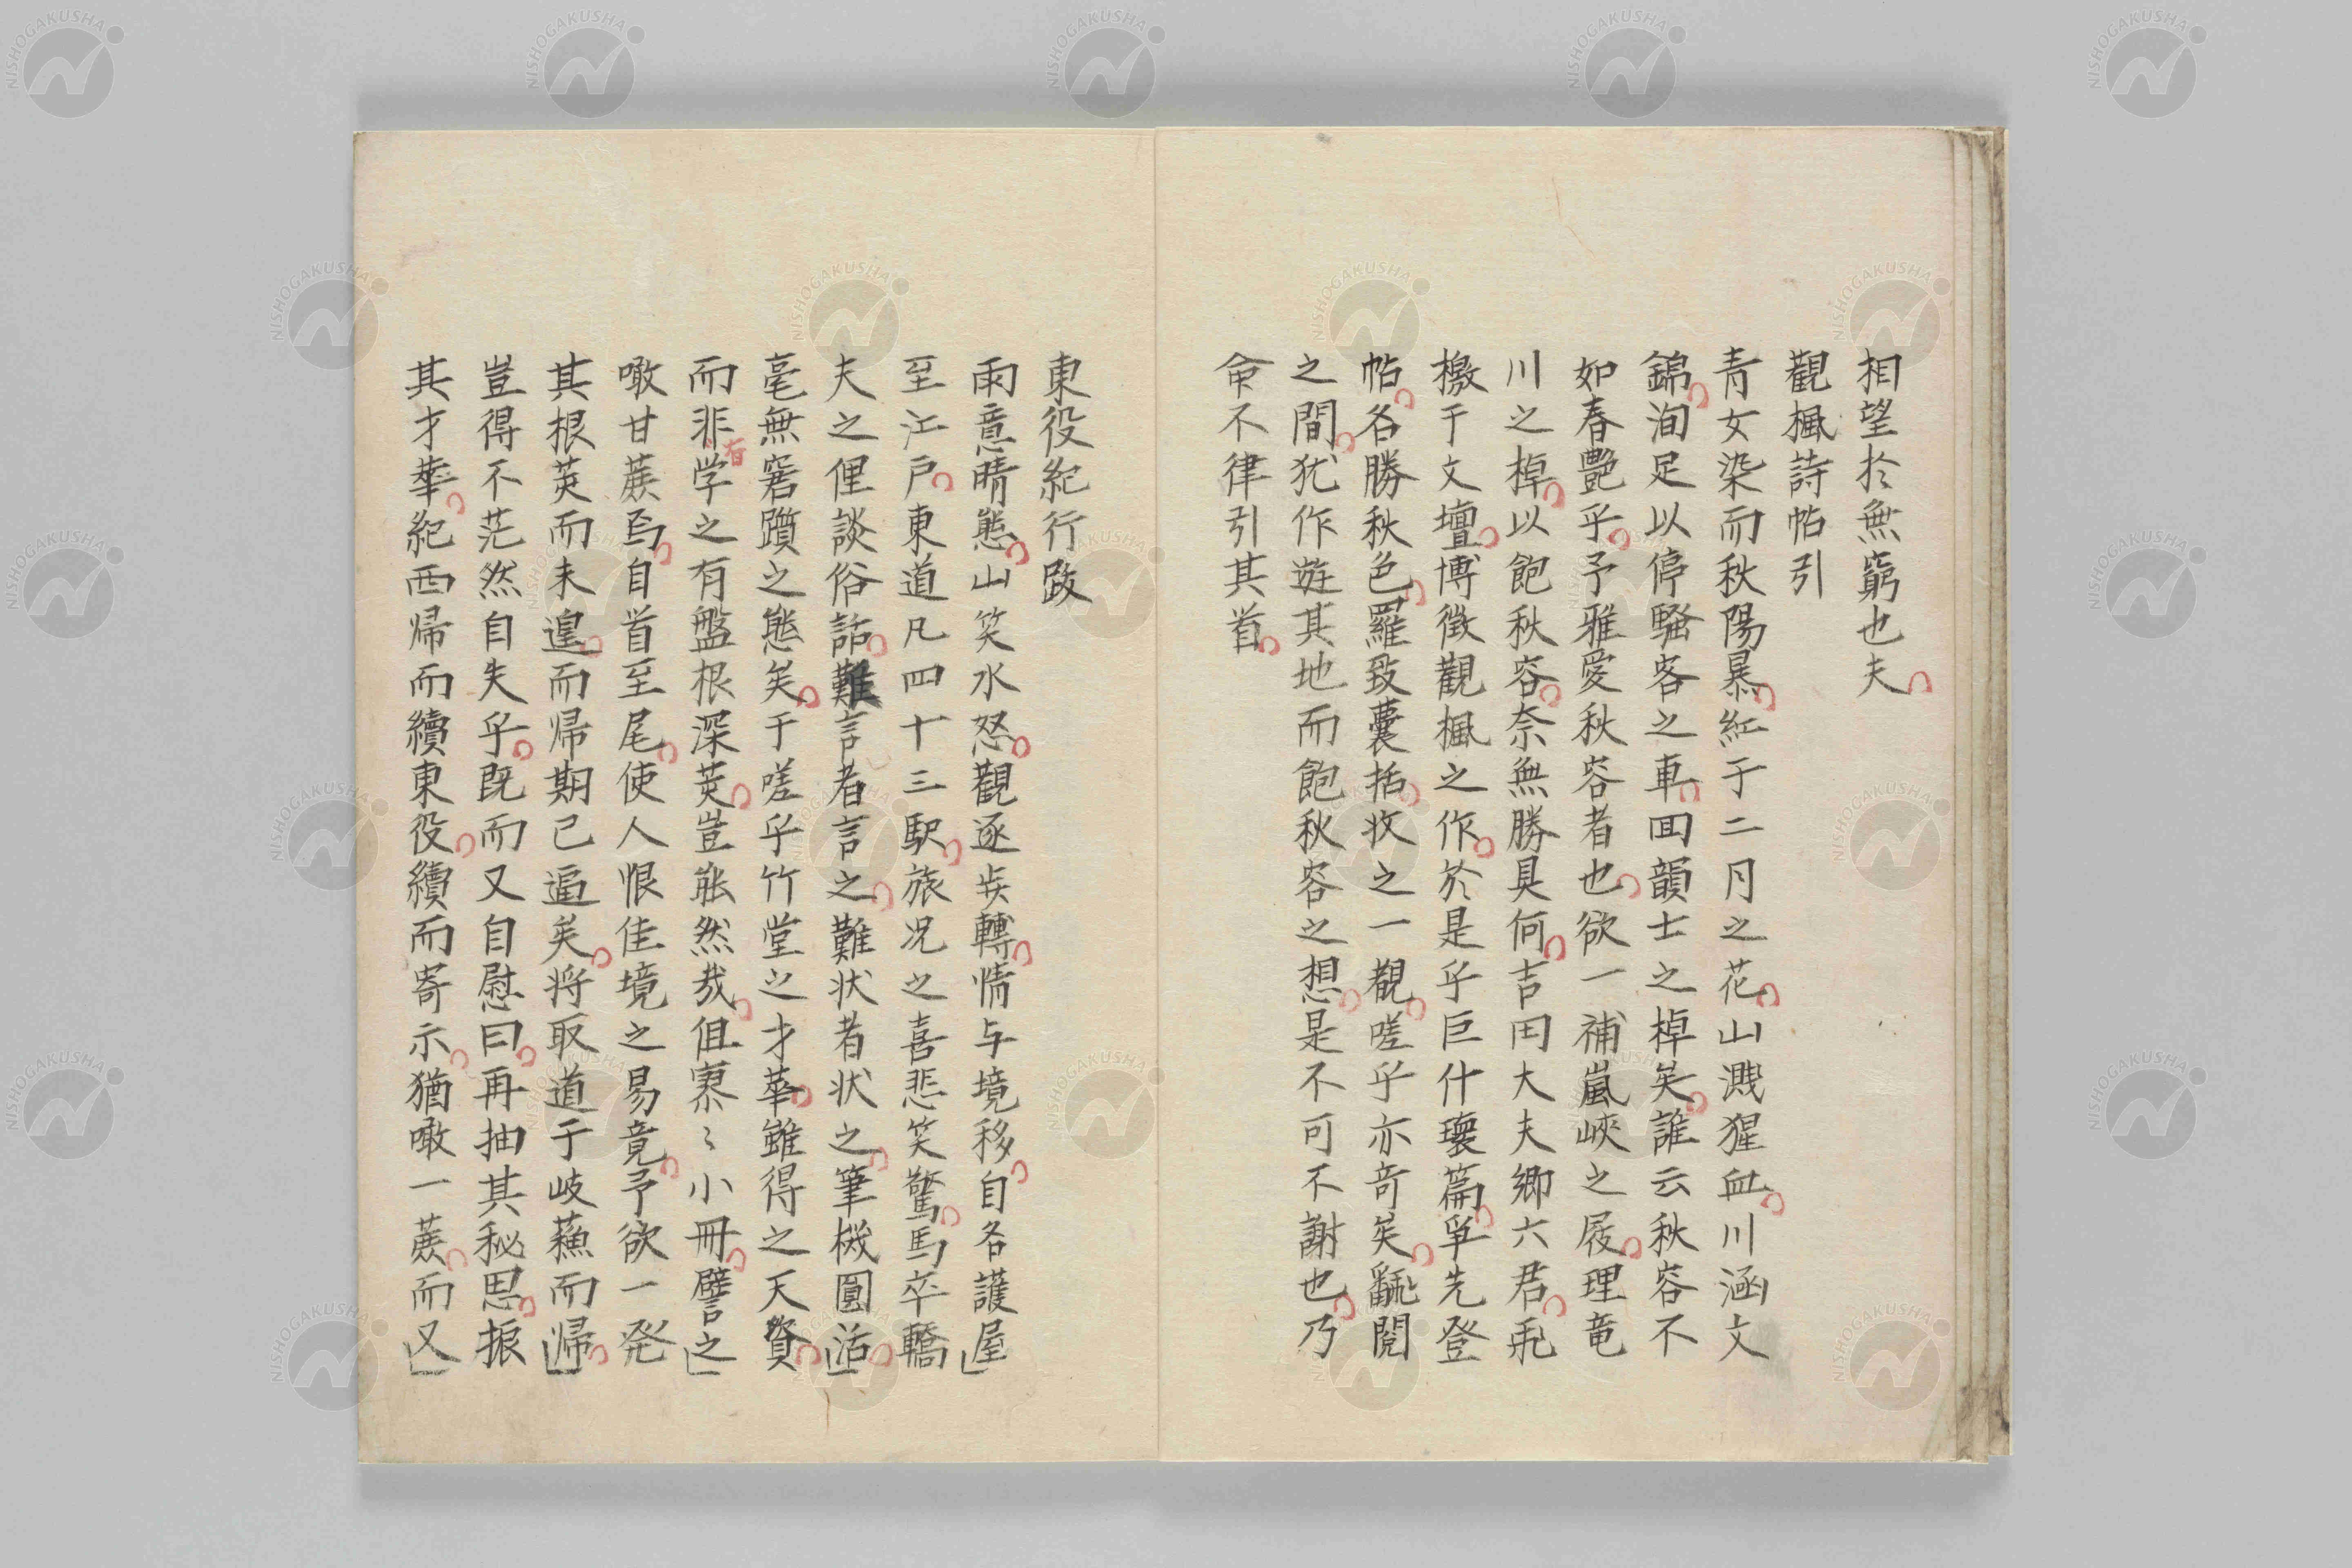 相望於無窮也夫
觀楓詩帖引
青女染而秋陽暴紅于二月之花山濺猩血川涵文
錦洵足以停騷客之車回韻士之棹矣誰云秋容不
如春艷乎予雅愛秋容者也欲一補嵐峽之屐理竜
川之棹以飽秋容奈無勝具何吉田大夫卿六君飛
檄于文壇博徴觀楓之作於是乎巨什瓌篇爭先登
帖名勝秋色羅致囊括收之一覩嗟乎亦奇矣飜閲
之間犹作遊其地而飽秋容之想是不可不謝也乃
命不律引其首
東役紀行跋
雨意晴態山笑水怒觀逐歩轉情与境移自各護屋
至江戸東道凡四十三駅旅况之喜悲笑驚馬卒轎
夫之俚談俗話難言者言之難状者状之筆機圓活
毫無窘躓之態矣于嗟乎竹堂之才華雖得之天資
而非学之有盤根深荄豈能然哉但寡〻小冊譬之
有
噉甘蔗焉自首至尾使人恨佳境之易竟予欲一発
其根荄而未遑而帰期已逼矣将取道于岐蘓而帰
豈得不茫然自失乎既而又自慰曰再抽其秘思振
其才華紀西帰而續東役續而寄示猶噉一蔗而又
NISHOGAKUSHA